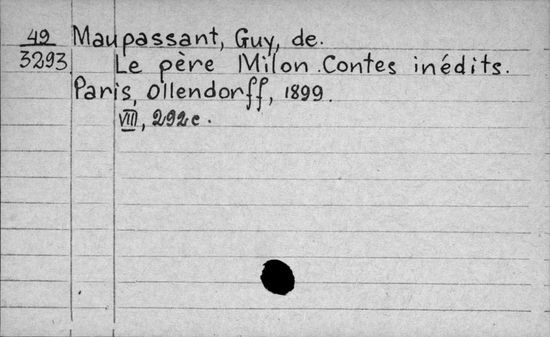 49 Maupassant, Guy, de.
3293 Le père Milon. Contes inédits.
Paris, Ollendorff, 1899.
VIII, 292 c.